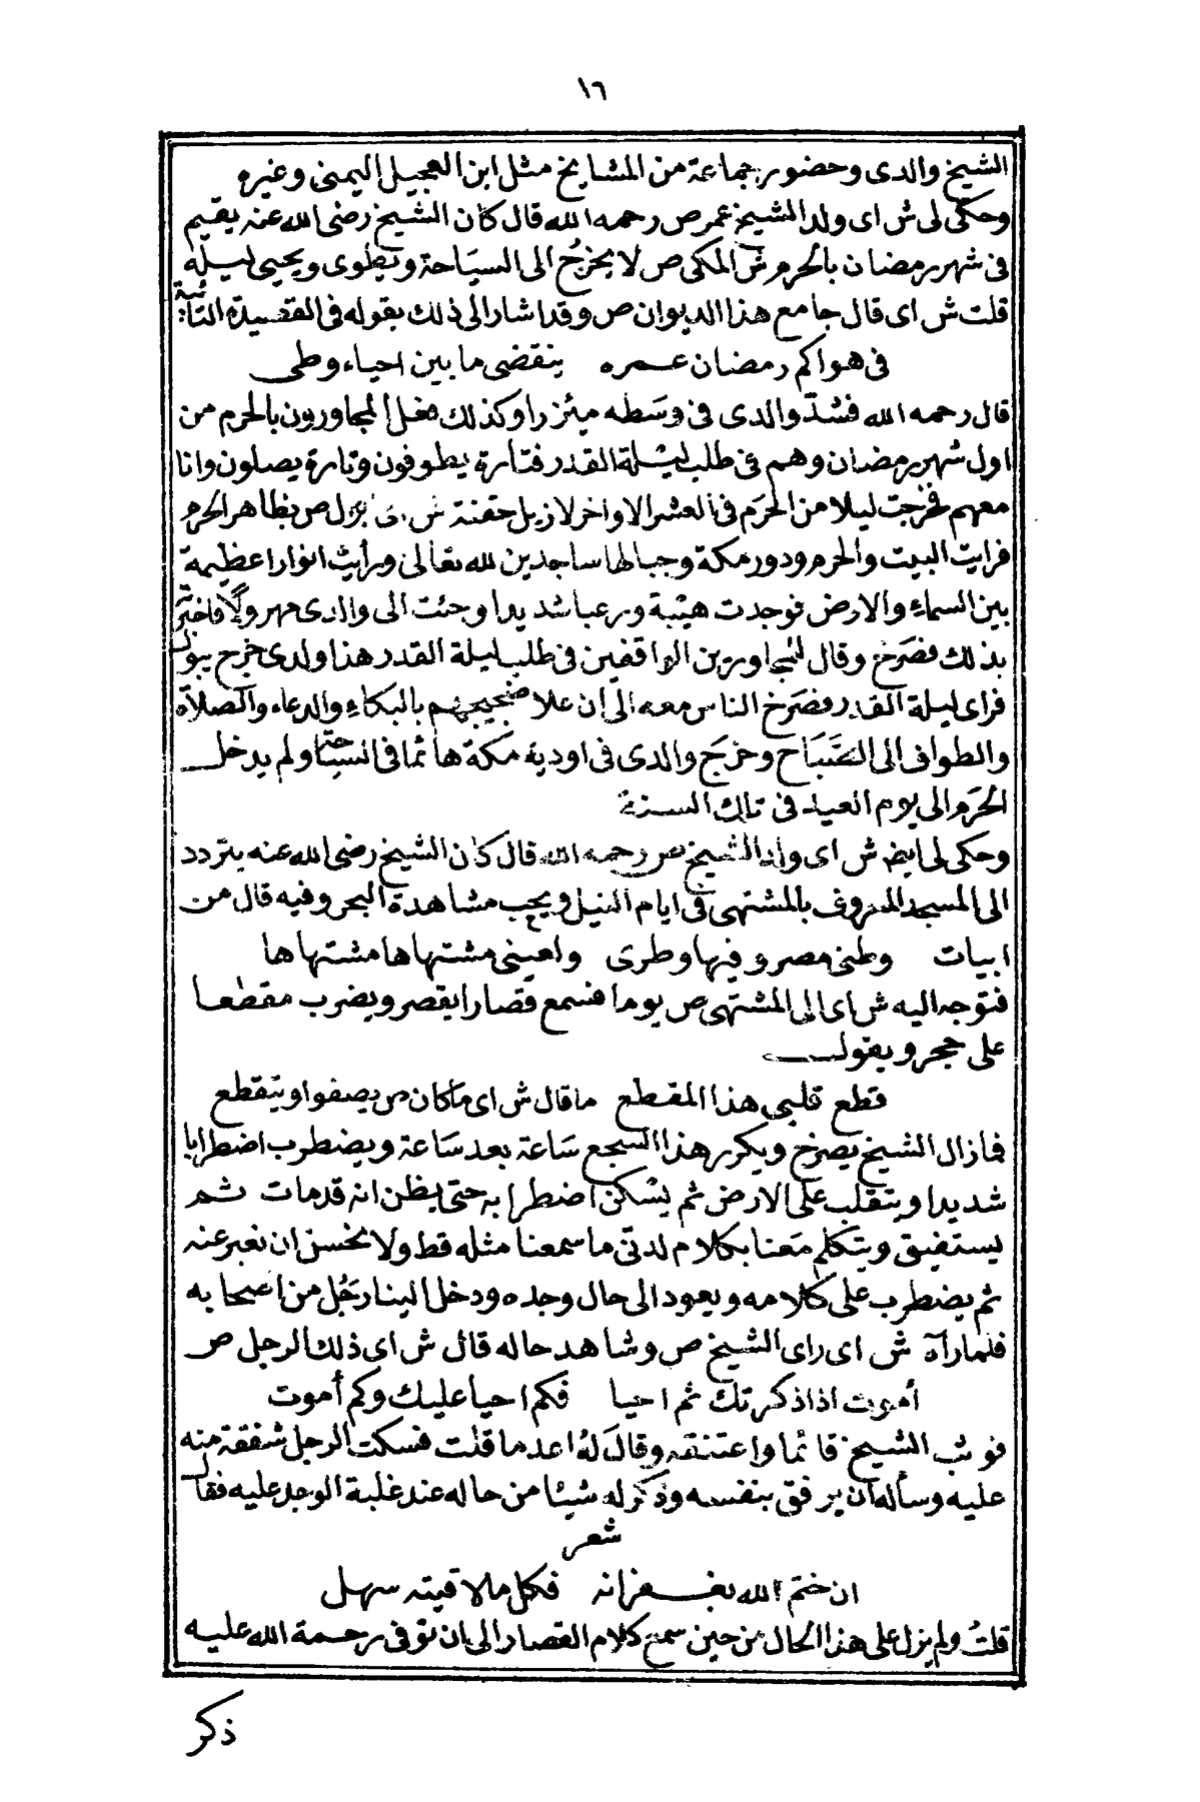 ١٦
الشيخ والدى وحضور جماعة من المشايخ مثل ابن العجيل اليمنى وغيره
وحكى لى ش اى ولد الشيخ عمر ص رحمه الله قال كان الشيخ رضى الله عنه يقيم
فى شهر رمضان بالحرم ش المكى ص لا يخرج الى السياحة ويطوى ويحيى ليله
قلت ش اى قال جامع هذا الديوان ص وقد اشار الى ذلك بقوله فى القصيدة التائية
فى هواكم رمضان عمره ينقضى ما بين احياء وطى
قال رحمه الله فشدّ والدى فى وسَطه ميئزرا وكذلك فعل المجاورون بالحرم من
اول شهر رمضان وهم فى طلب ليلة القدر فتارة يطوفون وتارة يصلون وانا
معهم فخرجت ليلا من الحرَم فى العشر الاواخر لازيل حقنة ش اى بول ص بظاهر الحرم
فرايت البيت والحرم ودور مكة وجبالها ساجدين لله تعالى ورأيت انوارا عظيمة
بين السماء والارض فوجدت هيبة ورعبا شديدا وجئت الى والدى مهرولا فاخبرته
بذلك فصَرخ وقال للمجاورين الواقفين فى طلب ليلة القدر هذا ولدى خرج يبول
فراى ليلة القدر فصَرخ الناس معه الى ان علا ضجيجهم بالبكاء والدعاء والصلاة
والطواف الى الصَّبَاح وخرَج والدى فى اودية مكة هائما فى السياحة ولم يدخل
الحَرَم الى يوم العيد فى تلك السنة
وحكى لى ايض ش اى ولد الشيخ ص رحمه الله قال كان الشيخ رضى الله عنه يتردد
الى المسجد المعروف بالمشتهى فى ايام النيل ويحب مشاهدة البحر وفيه قال من
ابيات وطنى مصر وفيها وطرى ولعينى مشتهاها مشتهاها
فتوجه اليه ش اى الى المشتهى ص يوما فسمع قصارا يقصر ويضرب مقطعا
على حجر ويقول
قطع قلبى هذا المقطع ما قال ش اى ما كان ص يصفوا ويتقطع
فما زال الشيخ يصرخ ويكرر هذا السجع سَاعة بعد سَاعة ويضطرب اضطرابا
شديدا ويتقلب على الارض ثم يسْكن اضطرابه حتى يظن انه قد مات ثم
يستفيق ويتكلم معَنا بكلام لدنى ما سمعنا مثله قط ولا نحسن ان نعبر عنه
ثم يضطرب على كلامه ويعود الى حال وجده ودخل الينا رجُل من اصحابه
فلما رآه ش اى راى الشيخ ص وشاهد حاله قال ش اى ذلك الرجل ص
أموت اذا ذكرتك ثم احيا فكم احيا عليك وكم أموت
فوثب الشيخ قائما واعتنقه وقالَ لهُ اعد ما قلت فسكت الرجل شفقة منه
عليه وسأله ان يرفق بنفسه وذكر له شيئا من حاله عند غلبة الوجد عليه فقال
شعر
ان ختم الله بغفرانه فكل ما لاقيته سهل
قلتُ ولم يزل على هذا الحال من حين سمع كلام القصار الى ان توفى رحمة الله عليه
ذكر